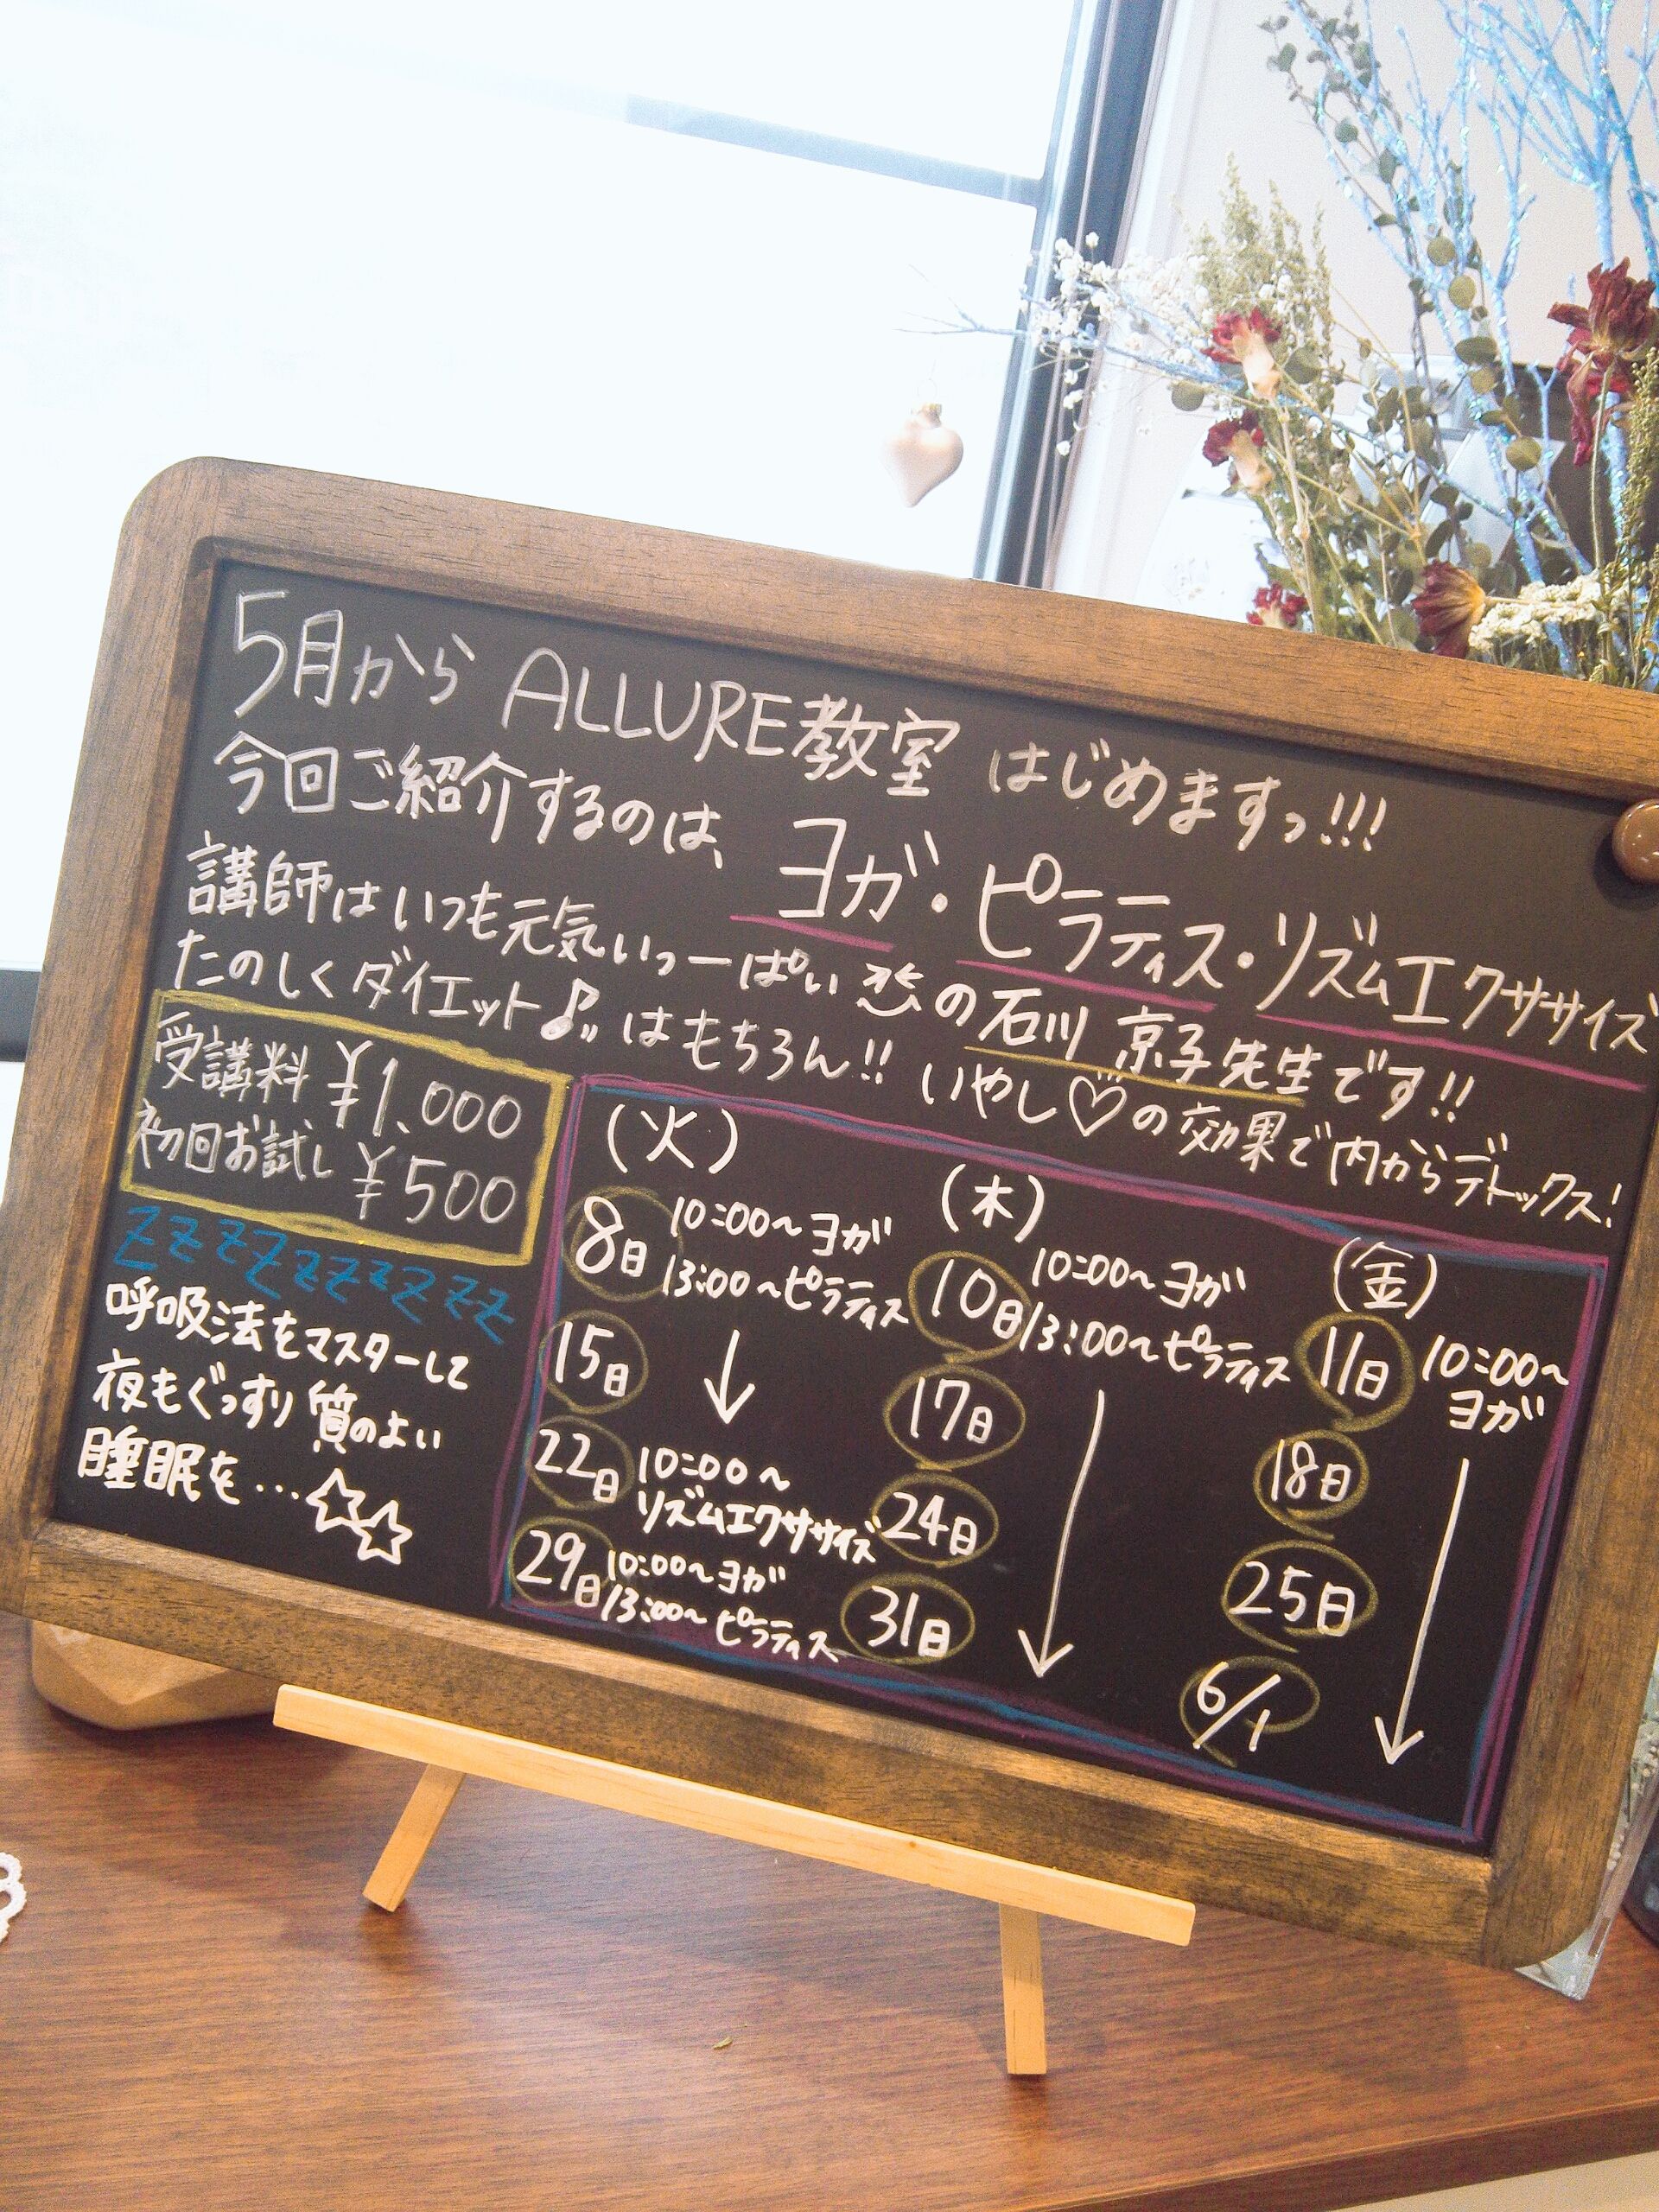 5月から ALLURE教室 はじめますっ!!!
今回ご紹介するのは、ヨガ・ピラティス・リズムエクササイズ
講師はいつも元気いっーぱい の石川 京子先生です!!
たのしくダイエット♪"はもちろん!! いやし♡の効果で内からデトックス!
受講料 ¥1.000
初回お試し ¥500
zzzzzzzzzz
呼吸法をマスターして
夜もぐっすり 質のよい
睡眠を…☆☆
(火)
8日 10:00〜ヨガ
13:00〜ピラティス
15日 ↓
22日 10:00〜
リズムエクササイズ
29日 10:00〜ヨガ
13:00〜ピラティス
(木)
10日 10:00〜ヨガ
13:00〜ピラティス
17日
24日
31日
(金)
11日 10:00〜
ヨガ
18日
25日
6/1